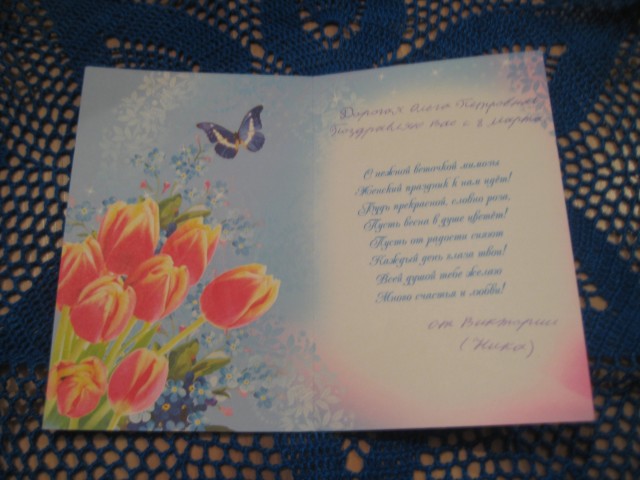 Дорогая Олеся Петровна
поздравляю вас с 8 марта
С нежной веточкой мимозы
Женский праздник к нам идёт!
Будь прекрасной, словно роза,
Пусть весна в душе цветёт!
Пусть от радости сияют
Каждый день глаза твои!
Всей душой тебе желаю
Много счастья и любви!
от Виктории
(Ника)